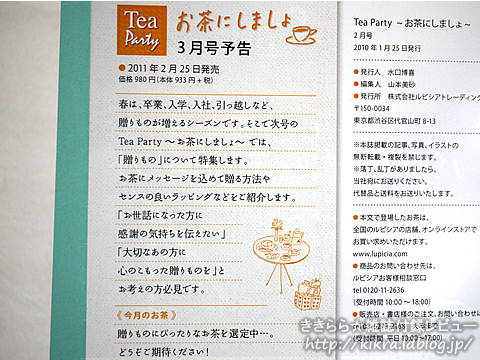 Tea Party
お茶にしましょ
3月号予告
● 2011年2月25日発売
価格980円(本体933円+税)
春は、卒業、入学、入社、引っ越しなど、
贈りものが増えるシーズンです。そこで次号の
Tea Party ～お茶にしましょ～ では、
「贈りもの」について特集します。
お茶にメッセージを込めて贈る方法や
センスの良いラッピングなどをご紹介します。
「お世話になった方に
感謝の気持ちを伝えたい」
「大切なあの方に
心のこもった贈りものを」と
お考えの方必見です。
《今月のお茶》
贈りものにぴったりなお茶を選定中…。
どうぞご期待ください!
Tea Party ～お茶にしましょ～
2月号
2010年1月25日発行
● 発行人 水口博喜
● 編集人 山本美砂
● 発行所 株式会社ルピシアトレーディング
〒150-0034
東京都渋谷区代官山町8-13
※本誌掲載の記事、写真、イラストの
無断転載・複製を禁じます。
※落丁、乱丁がありましたら、
当社宛にお送りください。
代替品と送料をお送りいたします。
● 本文で登場したお茶は、
全国のルピシアの店舗、オンラインストアで
お買い求めいただけます。
www.lupicia.com
● 商品のお問い合わせ先は、
ルピシアお客様相談窓口
tel 0120-11-2636
(受付時間 10:00～18:00)
● 販売店・書店様のご注文、お問い合わせは
(受付時間 平日 10:00～17:00)
ききらら大地葉付録レビュー
http://kikra.ldblog.jp/